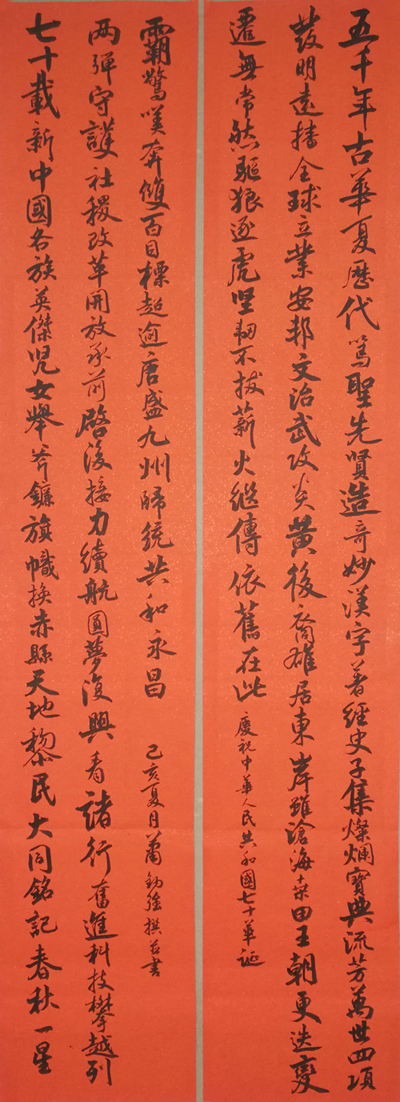 五千年古華夏歷代篤聖先賢造奇妙漢字著經史子集燦爛寶典流芳萬世四項
發明遠播全球立業安邦文治武攻炎黃後裔雄居東岸雖滄海桑田王朝更迭變
遷無常然驅狼逐虎堅韌不拔薪火繼傳依舊在此
慶祝中華人民共和國七十華誕
七十載新中國各族英傑兒女舉斧鐮旗幟換赤縣天地黎民大同銘記春秋一星
两彈守護社稷改革開放承前啓後接力續航圓夢復興看諸行奮進科技攀越列
霸驚嘆奔雙百目標超逾唐盛九州歸統共和永昌
己亥夏月蕭撰并書